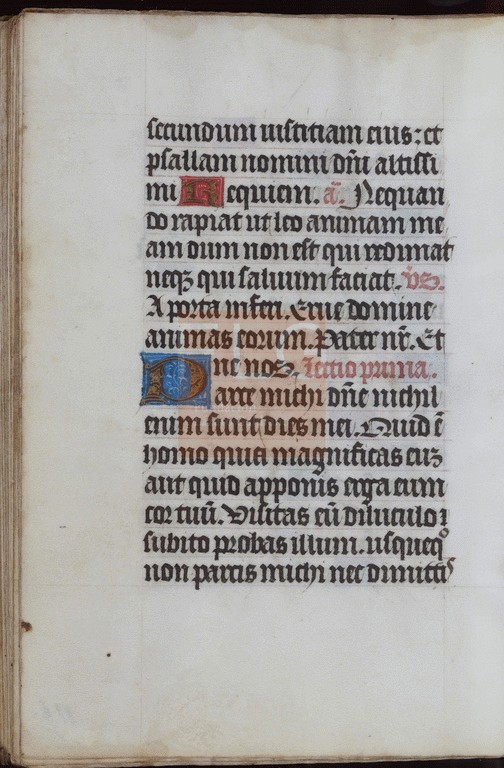 secundum iustitiam eius: et
psallam nomini dñi altissi
mi Requiem. a̅. Nequan
do rapiat ut leo animam me
am dum non est qui redimat
neqȝ qui saluum faciat. v̅s.
A porta inferi. Erue domine
animas eorum. Pater nr̅. Et
ne nos. Lectio prima.
Parce michi dñe nichil
enim sunt dies mei. Quid ē
homo quia magnificas euȝ
aut quid apponis erga eum
cor tuū. Visitas eū diluculo ⁊
subito probas illum. usquequo
non parcis michi nec dimittis